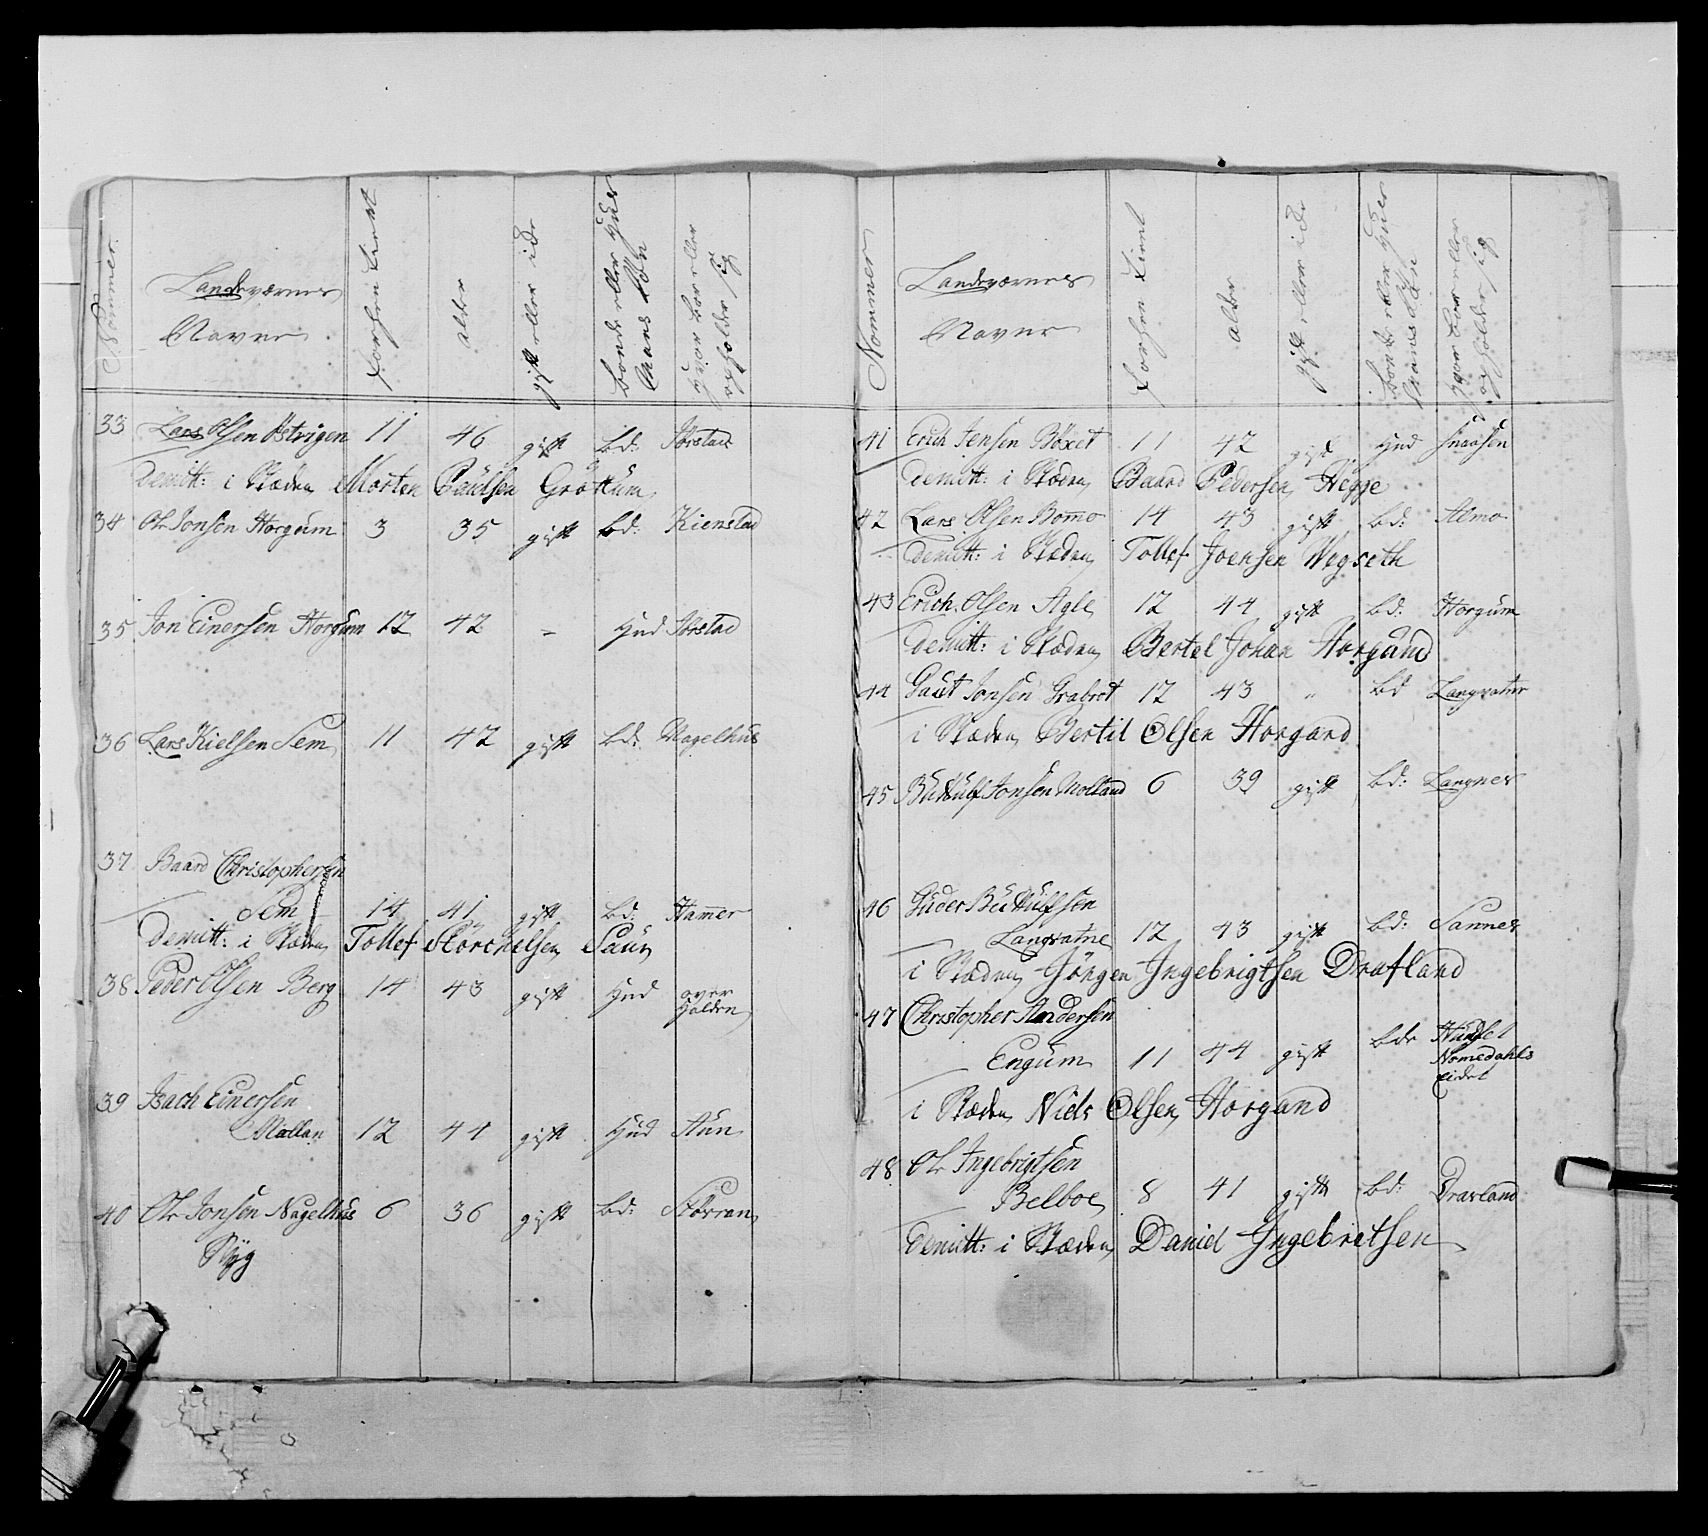 Nommer
Landeværnes
Navne
forhen tient
alder
gift eller ide
bonde eller Huus
Mans Søn
Hvor boer eller
opholder sig
33 Lars Olsen Østvigen 11 46 gift bd: Sørstad
Demitt: i Stæden Morten Paulsen Grøttum
34 Ole Jonsen Horgum 3 35 gift bd: Kienstad
35 Jon Einersen Horgum 12 42 - Hud Sørstad
36 Lars Kielsen Sem 11 42 gift bd: Nagelhus
37 Baard Christophersen
Sem 14 41 gift bd: Hammer
Demitt: i Stæden Tollef Storchelsen Saur
38 Peder Olsen Berg 14 43 gift Hud over
Halden
39 Isach Einersen
Mollan 12 44 gift Hud Aun
40 Ole Jonsen Nagelhus 6 36 gift bd: Størran
Syg
Nommer
Landeværnes
Navne
forhen tient
alder
gift eller ide
bonde eller Huus
Mans Søn
Hvor boer eller
opholder sig
41 Erich Jensen Bøxet 11 42 gift Hud Snaasen
Demitt: i Stæden Baard Pedersen Hegge
42 Lars Olsen Bomo 14 43 gift bd: Almo
Demitt: i Stæden Tollef Joensen Wegseth
43 Erich Olsen Agle 12 44 gift bd: Horgum
Demitt: i Stæden Bertel Johan Horgand
44 Gaut Jonsen Grabrot 12 43 " bd Langvatne
i Stæden Bertil Olsen Horgand
45 Buttulf Jonsen Moltand 6 39 gift bd: Langnes
46 Guder Buttulfsen
Langvatne 12 43 gift bd: Sannes
i Stæden Jörgen Ingebrigtsen Drafland
47 Christopher Andersen
Engum 11 44 gift bde
Nomedahls
Eidet
i Stæden Niels Olsen Horgand
48 Ole Ingebrigtsen
Belboe 8 41 gift bd: Dravland
Demitt: i Stæden Daniel Ingebretsen